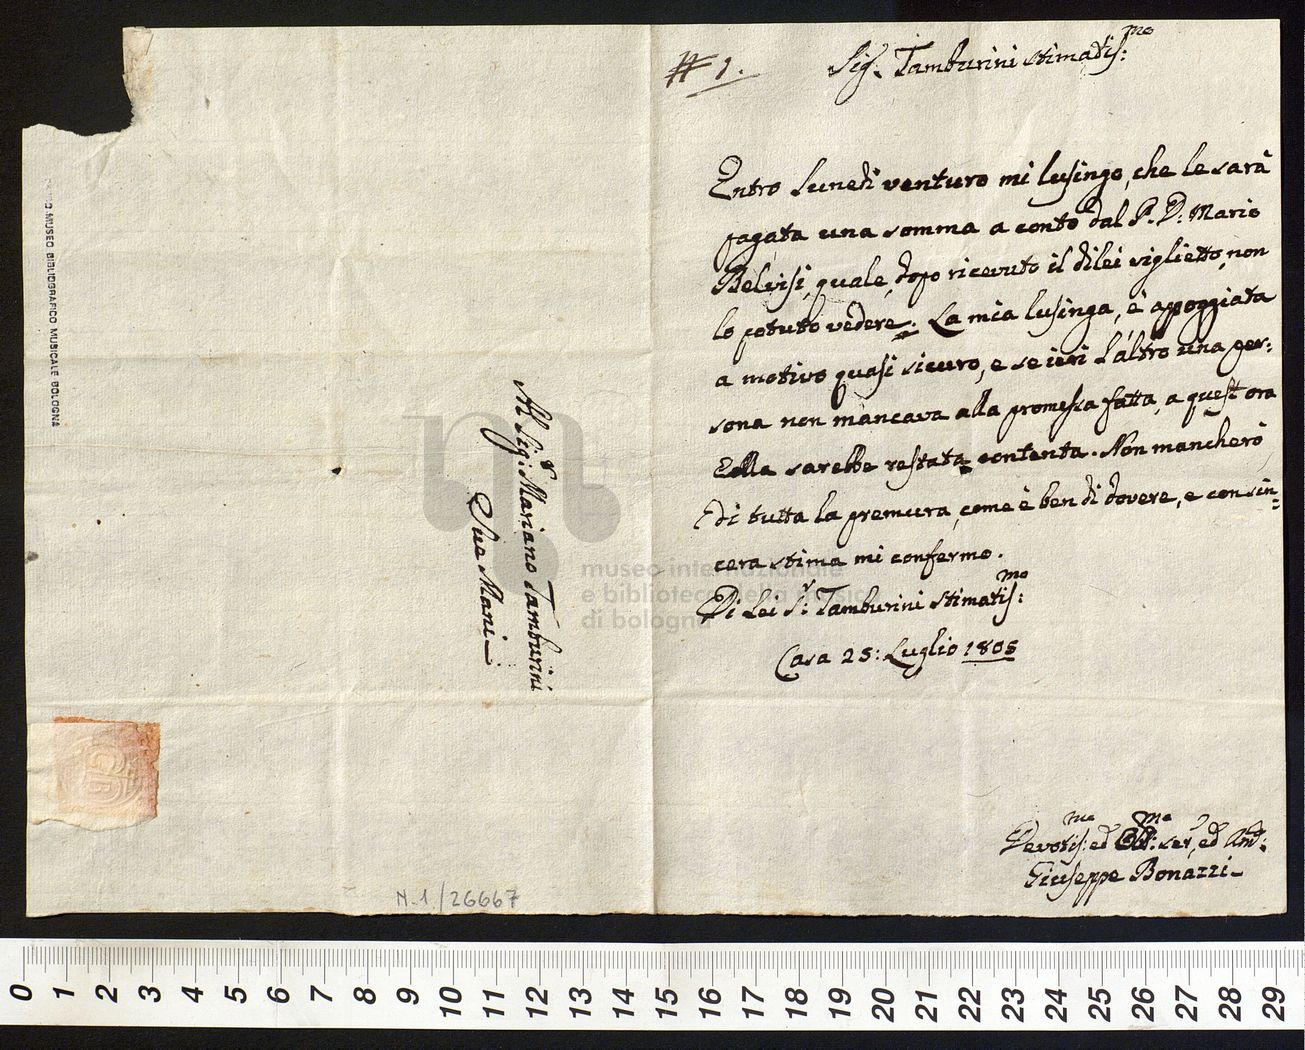 # 1.
Sig.r Tamburini Stimatis:mo
Entro Lunedi venturo mi lusingo, che le sarà
pagata una somma a conto dal P. D: Mario
Belvisi, quale, dopo ricevuto il dilei viglietto, non
lo potuto vedere. La mia lusinga, è appoggiata
a motivo quasi sicuro, e se ieri l'altro una per:
sona non mancava alla promessa fatta, a quest ora
Ella sarebbe restata contenta. Non mancherò
di tutta la premura, come è ben di dovere, e con sin:
cera stima mi confermo.
Di Lei S.r Tamburini Stimatis:mo
Casa 25: Luglio 1805
Devotis:mo ed Obb:mo ser, ed Am:
Giuseppe Bonazzi
Al Sig:r Mariano Tamburini
Sue Mani
MUSEO BIBLIOGRAFICO MUSICALE BOLOGNA
N.1/26667
museo internazionale
e biblioteca della musica
di bologna
0 1 2 3 4 5 6 7 8 9 10 11 12 13 14 15 16 17 18 19 20 21 22 23 24 25 26 27 28 29